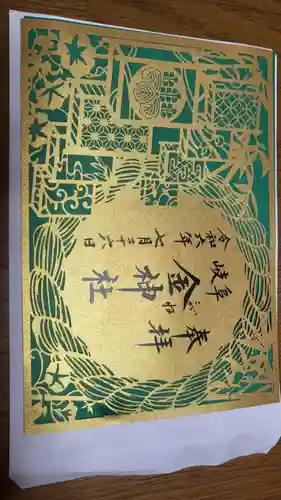 奉拝
岐阜
金神社
こがね
令和六年 七月二十六日